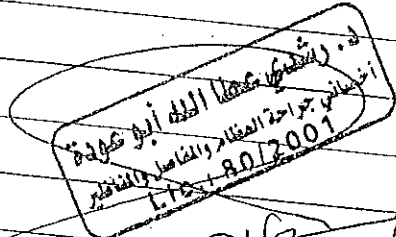 د. رشدي عطا الله أبو عودة
أخصائي جراحة العظام والمفاصل والمناظير
Lic.: 80/2001